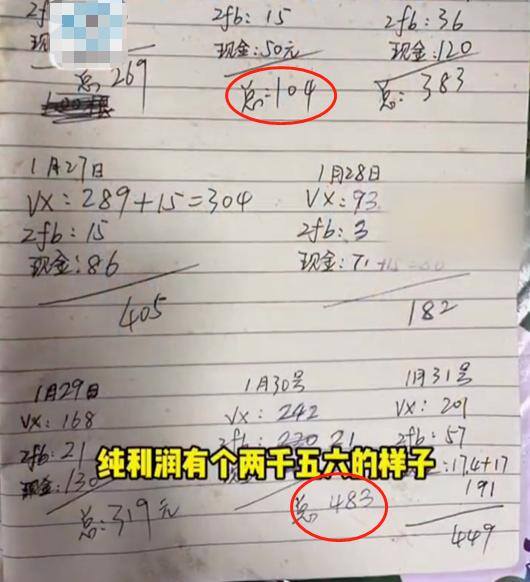 2fb: 15
2fb: 36
现
现金: 50元
现金: 120
总: 269
总: 104
总: 383
1月27日
VX: 289+15=304
2fb: 15
现金: 86
405
1月28日
VX: 93
2fb: 3
现金:
182
1月29日
VX: 168
2fb: 21
现金: 130
总: 319元
1月30号
VX: 242
2fb: 21
总 483
1月31号
VX: 201
2fb: 57
17.4+17
191
449
纯利润有个两千五六的样子